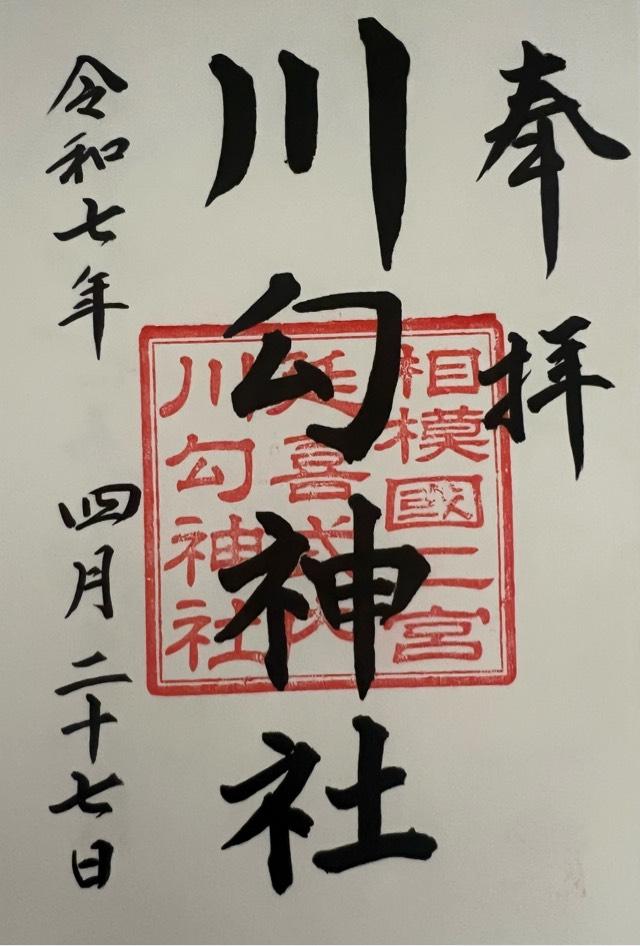 奉拝
川勾神社
相模國二宮
延喜式内
川勾神社
令和七年 四月二十七日